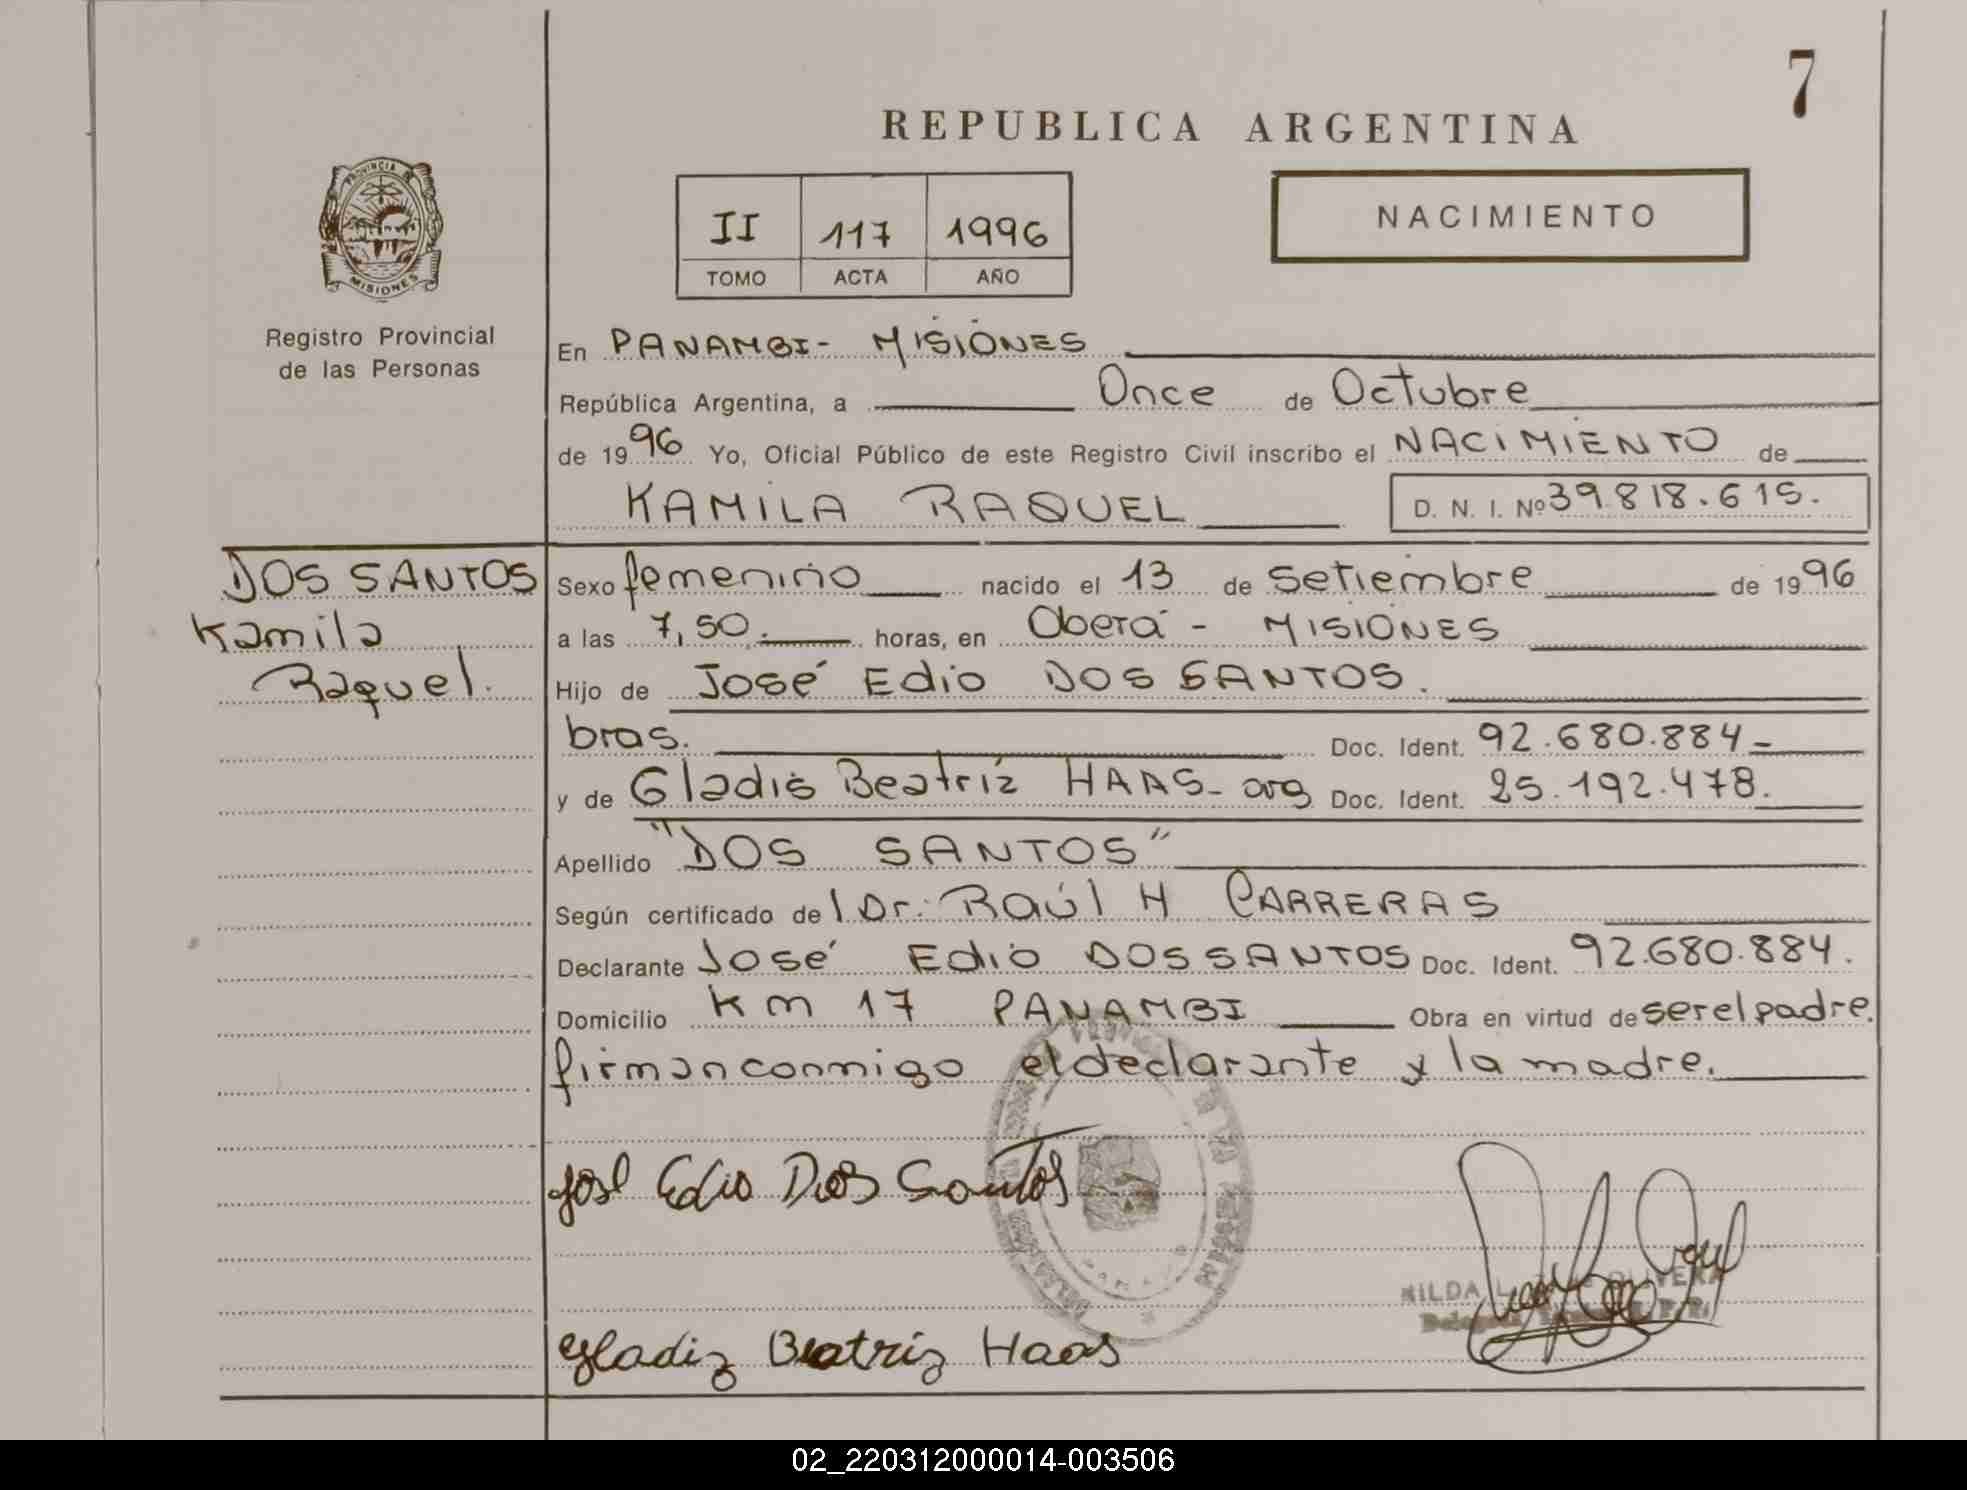 7
REPUBLICA ARGENTINA
PROVINCIA DE
MISIONES
II 117 1996
TOMO ACTA AÑO
NACIMIENTO
Registro Provincial
de las Personas
En PANAMBI- MISIONES
República Argentina, a Once de Octubre
de 1996 Yo, Oficial Público de este Registro Civil inscribo el NACIMIENTO de
KAMILA RAQUEL D. N. I. Nº 39.818.615.
DOS SANTOS
Kamila
Raquel.
Sexo femenino nacido el 13 de Setiembre de 1996
a las 7,50. horas, en Oberá - MISIONES
Hijo de José Edio DOS SANTOS.
bras. Doc. Ident. 92.680.884-
y de Gladis Beatríz HAAS- arg Doc. Ident. 25.192.478.
Apellido "DOS SANTOS"
Según certificado del Dr. Raúl H CARRERAS
Declarante José Edio DOS SANTOS Doc. Ident. 92.680.884.
Domicilio Km 17 PANAMBI Obra en virtud de ser el padre.
firman conmigo el declarante y la madre.
José Edio Dos Santos
HILDA L. OLIVERA
Gladiz Beatriz Haas
02_220312000014-003506